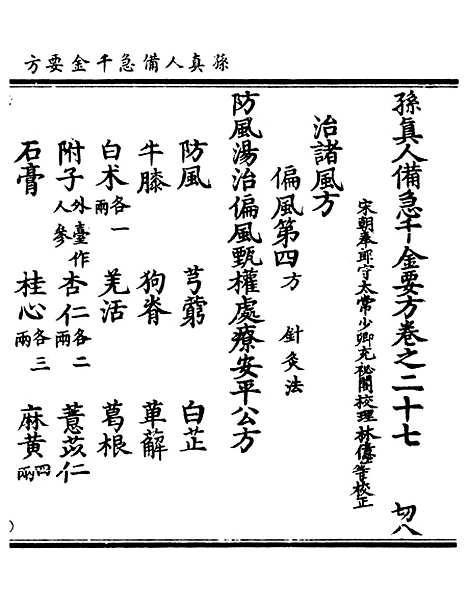 孫真人備急千金要方
孫真人備急千金要方卷之二十七 切八
宋朝奉郎守太常少卿充祕閣校理林億等校正
治諸風方
偏風第四 方 針灸法
防風湯治偏風甄權處療安平公方
防風 芎藭 白芷
牛膝 狗脊 萆薢
白朮各一兩 羌活 葛根
附子外臺作人參 杏仁各二兩 薏苡仁
石膏 桂心各三兩 麻黃四兩